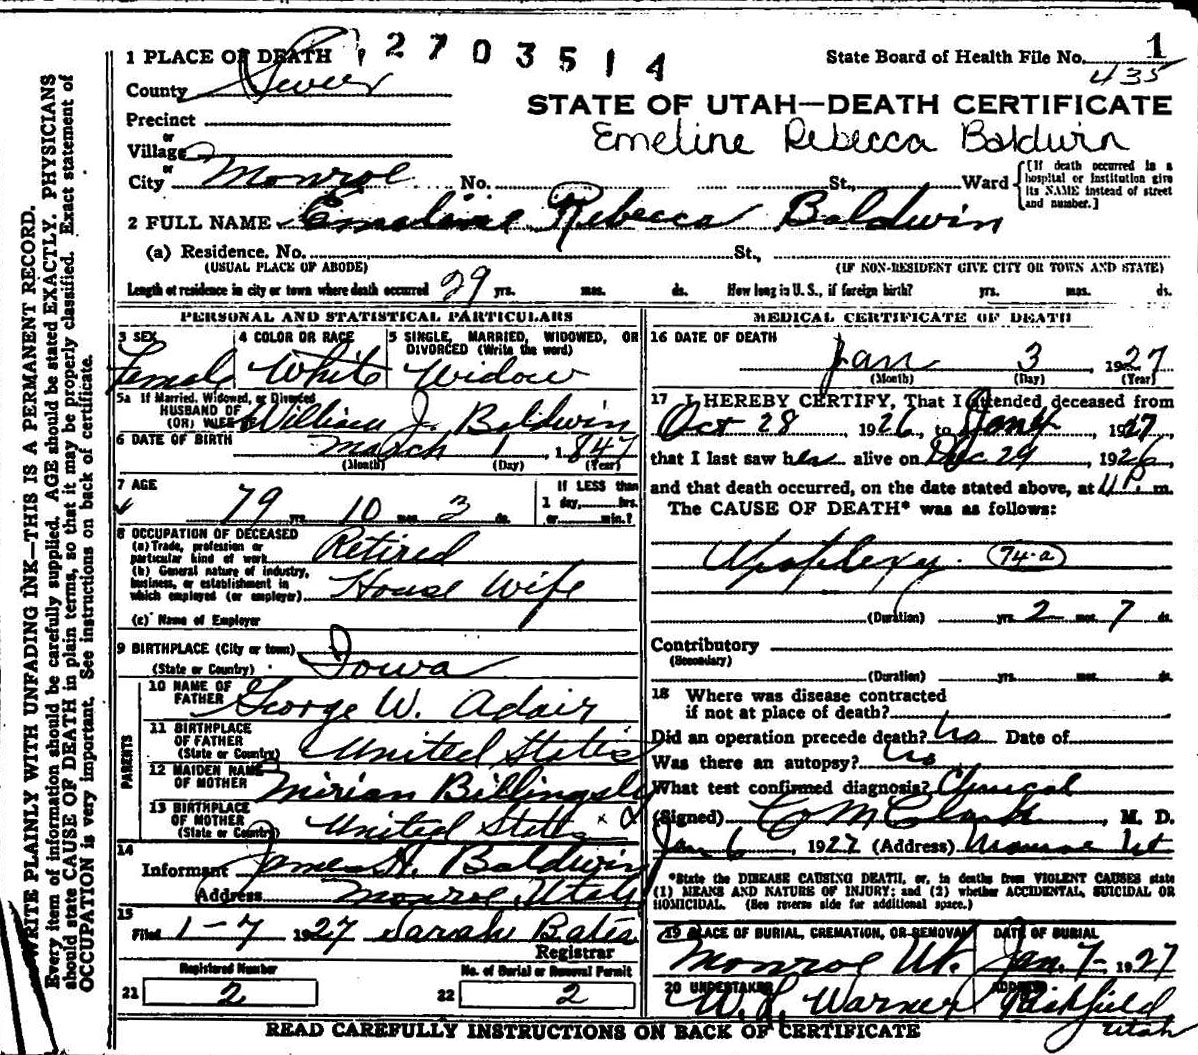 1 PLACE OF DEATH
2703514
State Board of Health File No. 1
435
County Sevier
STATE OF UTAH—DEATH CERTIFICATE
Precinct
Emeline Rebecca Baldwin
or
Village
or
City Monroe No. St., Ward
[If death occurred in a hospital or institution give its NAME instead of street and number.]
2 FULL NAME Emeline Rebecca Baldwin
(a) Residence. No. St.,
(USUAL PLACE OF ABODE) (IF NON-RESIDENT GIVE CITY OR TOWN AND STATE)
Length of residence in city or town where death occurred 29 yrs. mos. ds. How long in U. S., if foreign birth? yrs. mos. ds.
PERSONAL AND STATISTICAL PARTICULARS
3 SEX
Female
4 COLOR OR RACE
White
5 SINGLE, MARRIED, WIDOWED, OR DIVORCED (Write the word)
Widow
5a If Married, Widowed, or Divorced
HUSBAND OF
(OR) WIFE William J. Baldwin
6 DATE OF BIRTH March 1, 1847
(Month) (Day) (Year)
7 AGE
79 yrs. 10 mos. 3 ds.
If LESS than
1 day, hrs.
or min.?
8 OCCUPATION OF DECEASED
(a) Trade, profession or
particular kind of work Retired
(b) General nature of industry,
business, or establishment in
which employed (or employer) House Wife
(c) Name of Employer
9 BIRTHPLACE (City or town)
(State or Country) Iowa
PARENTS
10 NAME OF
FATHER George W. Adair
11 BIRTHPLACE
OF FATHER
(State or Country) United States
12 MAIDEN NAME
OF MOTHER Mirian Billingsly
13 BIRTHPLACE
OF MOTHER
(State or Country) United States
14
Informant James H. Baldwin
Address Monroe, Utah
15
Filed 1-7 1927 Sarah Bates
Registrar
Registered Number
21 2
No. of Burial or Removal Permit
22 2
MEDICAL CERTIFICATE OF DEATH
16 DATE OF DEATH
Jan 3 1927
(Month) (Day) (Year)
17 I HEREBY CERTIFY, That I attended deceased from
Oct 28, 1926, to Jan 4, 1927,
that I last saw her alive on Dec 29, 1926,
and that death occurred, on the date stated above, at 4 P. m.
The CAUSE OF DEATH* was as follows:
Apoplexy. 74-a
(Duration) yrs. 2 mos. 7 ds.
Contributory
(Secondary)
(Duration) yrs. mos. ds.
18 Where was disease contracted
if not at place of death?
Did an operation precede death? No Date of
Was there an autopsy? No
What test confirmed diagnosis? Clinical
(Signed) M. D.
Jan 6, 1927 (Address) Monroe Ut
*State the DISEASE CAUSING DEATH, or, in deaths from VIOLENT CAUSES state
(1) MEANS AND NATURE OF INJURY; and (2) whether ACCIDENTAL, SUICIDAL OR
HOMICIDAL. (See reverse side for additional space.)
19 PLACE OF BURIAL, CREMATION, OR REMOVAL
Monroe Ut.
DATE OF BURIAL
Jan. 7- 1927
20 UNDERTAKER
Warner
ADDRESS
Richfield
Utah
READ CAREFULLY INSTRUCTIONS ON BACK OF CERTIFICATE
WRITE PLAINLY WITH UNFADING INK—THIS IS A PERMANENT RECORD.
Every item of information should be carefully supplied. AGE should be stated EXACTLY. PHYSICIANS
should state CAUSE OF DEATH in plain terms, so that it may be properly classified. Exact statement of
OCCUPATION is very important. See instructions on back of certificate.